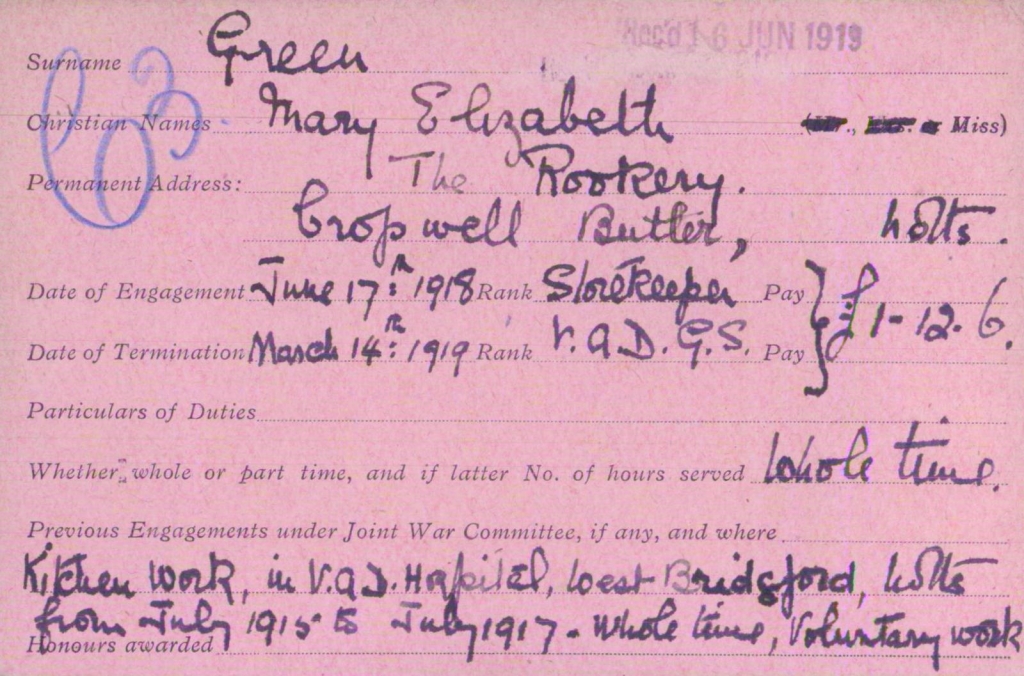 Rec'd 16 JUN 1919
Surname Green
Christian Names Mary Elizabeth (Mr., Mrs. or Miss)
Permanent Address: The Rookery.
Cropwell Butler, Notts.
Date of Engagement June 17th 1918 Rank Storekeeper Pay } £1-12.6.
Date of Termination March 14th 1919 Rank V.A.D. G.S. Pay
Particulars of Duties
Whether whole or part time, and if latter No. of hours served Whole time.
Previous Engagements under Joint War Committee, if any, and where
Kitchen Work, in V.A.D. Hospital, West Bridgford, Notts
from July 1915 to July 1917 - Whole time, Voluntary work
Honours awarded